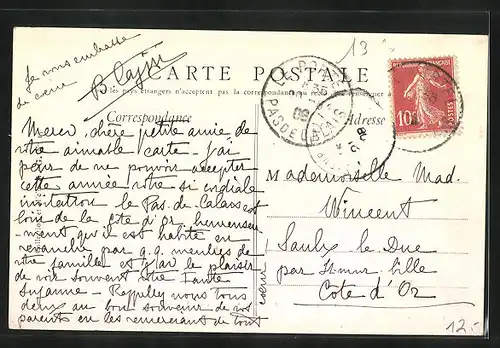 Je vous embrasse
de cœur
13
CARTE POSTALE
les pays étrangers n'acceptent pas la correspondance au
Correspondance
Adresse
PAS DE
10
Merci, chère petite amie de
votre aimable carte - j'ai
peur de ne pouvoir accepter
cette année votre si cordiale
invitation le Pas-de-Calais est
loin de la Côte d'Or heureuse-
ment qu'il est habité en
revanche par q.q. membres de
votre famille et j'ai le plaisir
de voir souvent votre Tante
Suzanne - nous tous
deux au bon souvenir de vos
parents en les remerciant de tout
Mademoiselle Mad.
Wincent
Saulx le Duc
par Is-sur-Tille
Côte d'Or
12.-